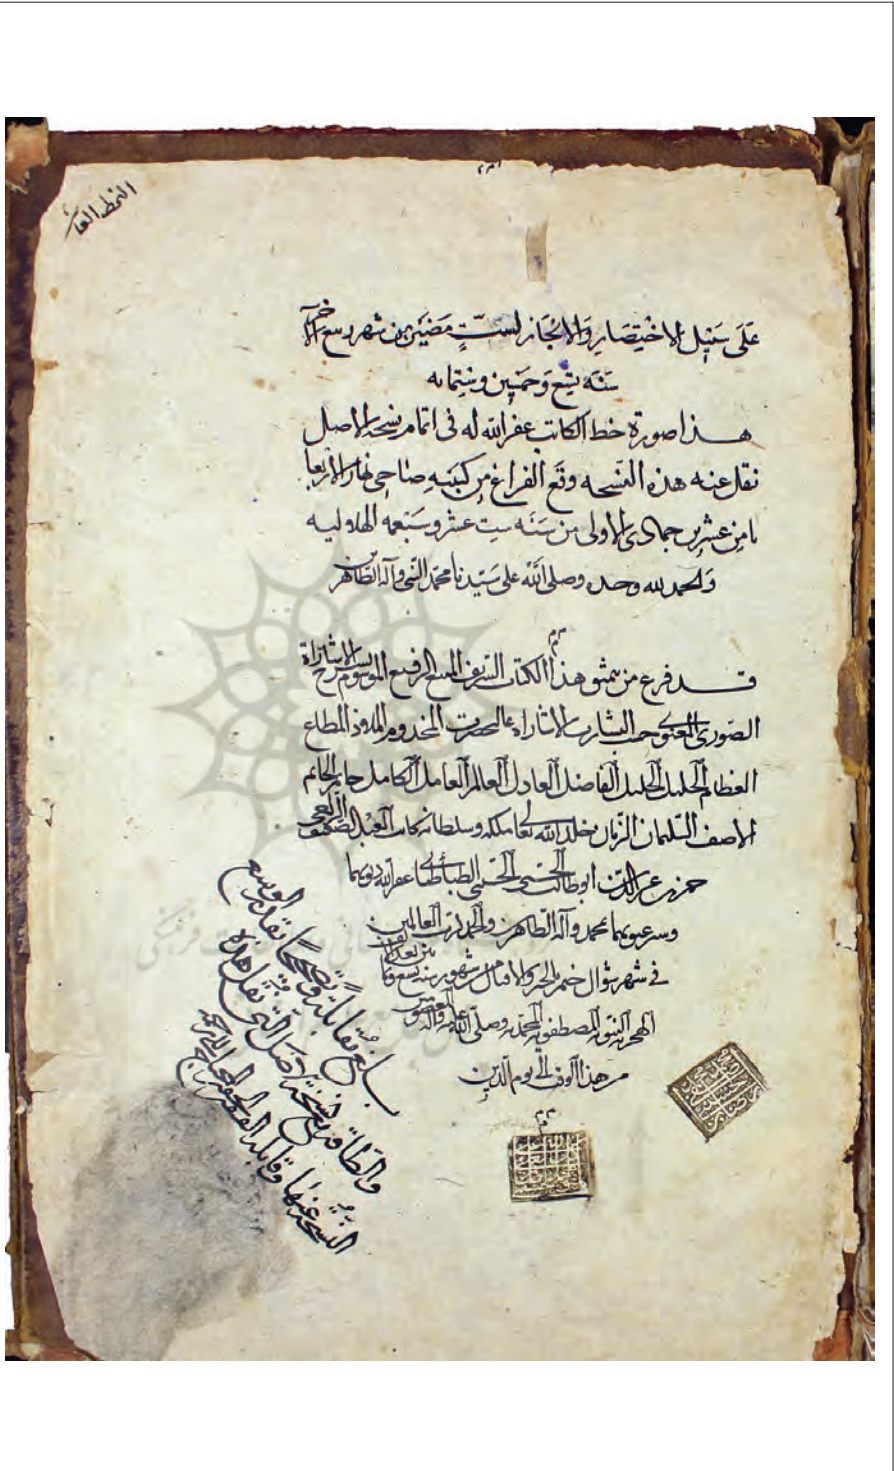 النمط العاشر
على سبيل الاختصار والايجاز لستٍ مضين من شهر ربيع الآخر
سنه تسع وخمسين وستمائه
هذا صورة خط الكاتب غفر الله له فى اتمام نسخه الاصل
نقل عنه هذه النسخه وقع الفراغ من كتبته ضاحى نهار الاربعا
ثامن عشرين جمادى الاولى من سنه ست عشر وسبعمه الهلاليه
والحمد لله وحده وصلى الله على سيدنا محمد النبى وآله الطاهرين
قد فرغ من مشق هذا الكتاب الشريف المنيع الرفيع الموسوم بشرح الاشارات
الصورى المعنوى حسب الاشاره عاليحضرت المخدوم الملاذ المطاع
العظام الجليل الفاضل العادل العالم العامل الكامل حاتم
الاصف السليمان الزمان خلد الله تعا ملكه وسلطانه كاتب العبد
حمزه بن عز الدين ابوطالب الحسنى الحسينى الطباطبائى غفر الله ذنوبهما
وستر عيوبهما بمحمد وآله الطاهرين والحمد لله رب العالمين
فى شهر شوال ختم بالخير والاقبال من شهور سنه تسع
الهجريه النبويه المصطفويه المحمديه وصلى الله عليه وآله
من هذا الوف الى يوم الدين
بلغ مقابلة وتصحيحًا بقدر الوسع
والطاقه مع نسخة الاصل التى نقل هذه
النسخه عنها وقابله الفقير الحقير